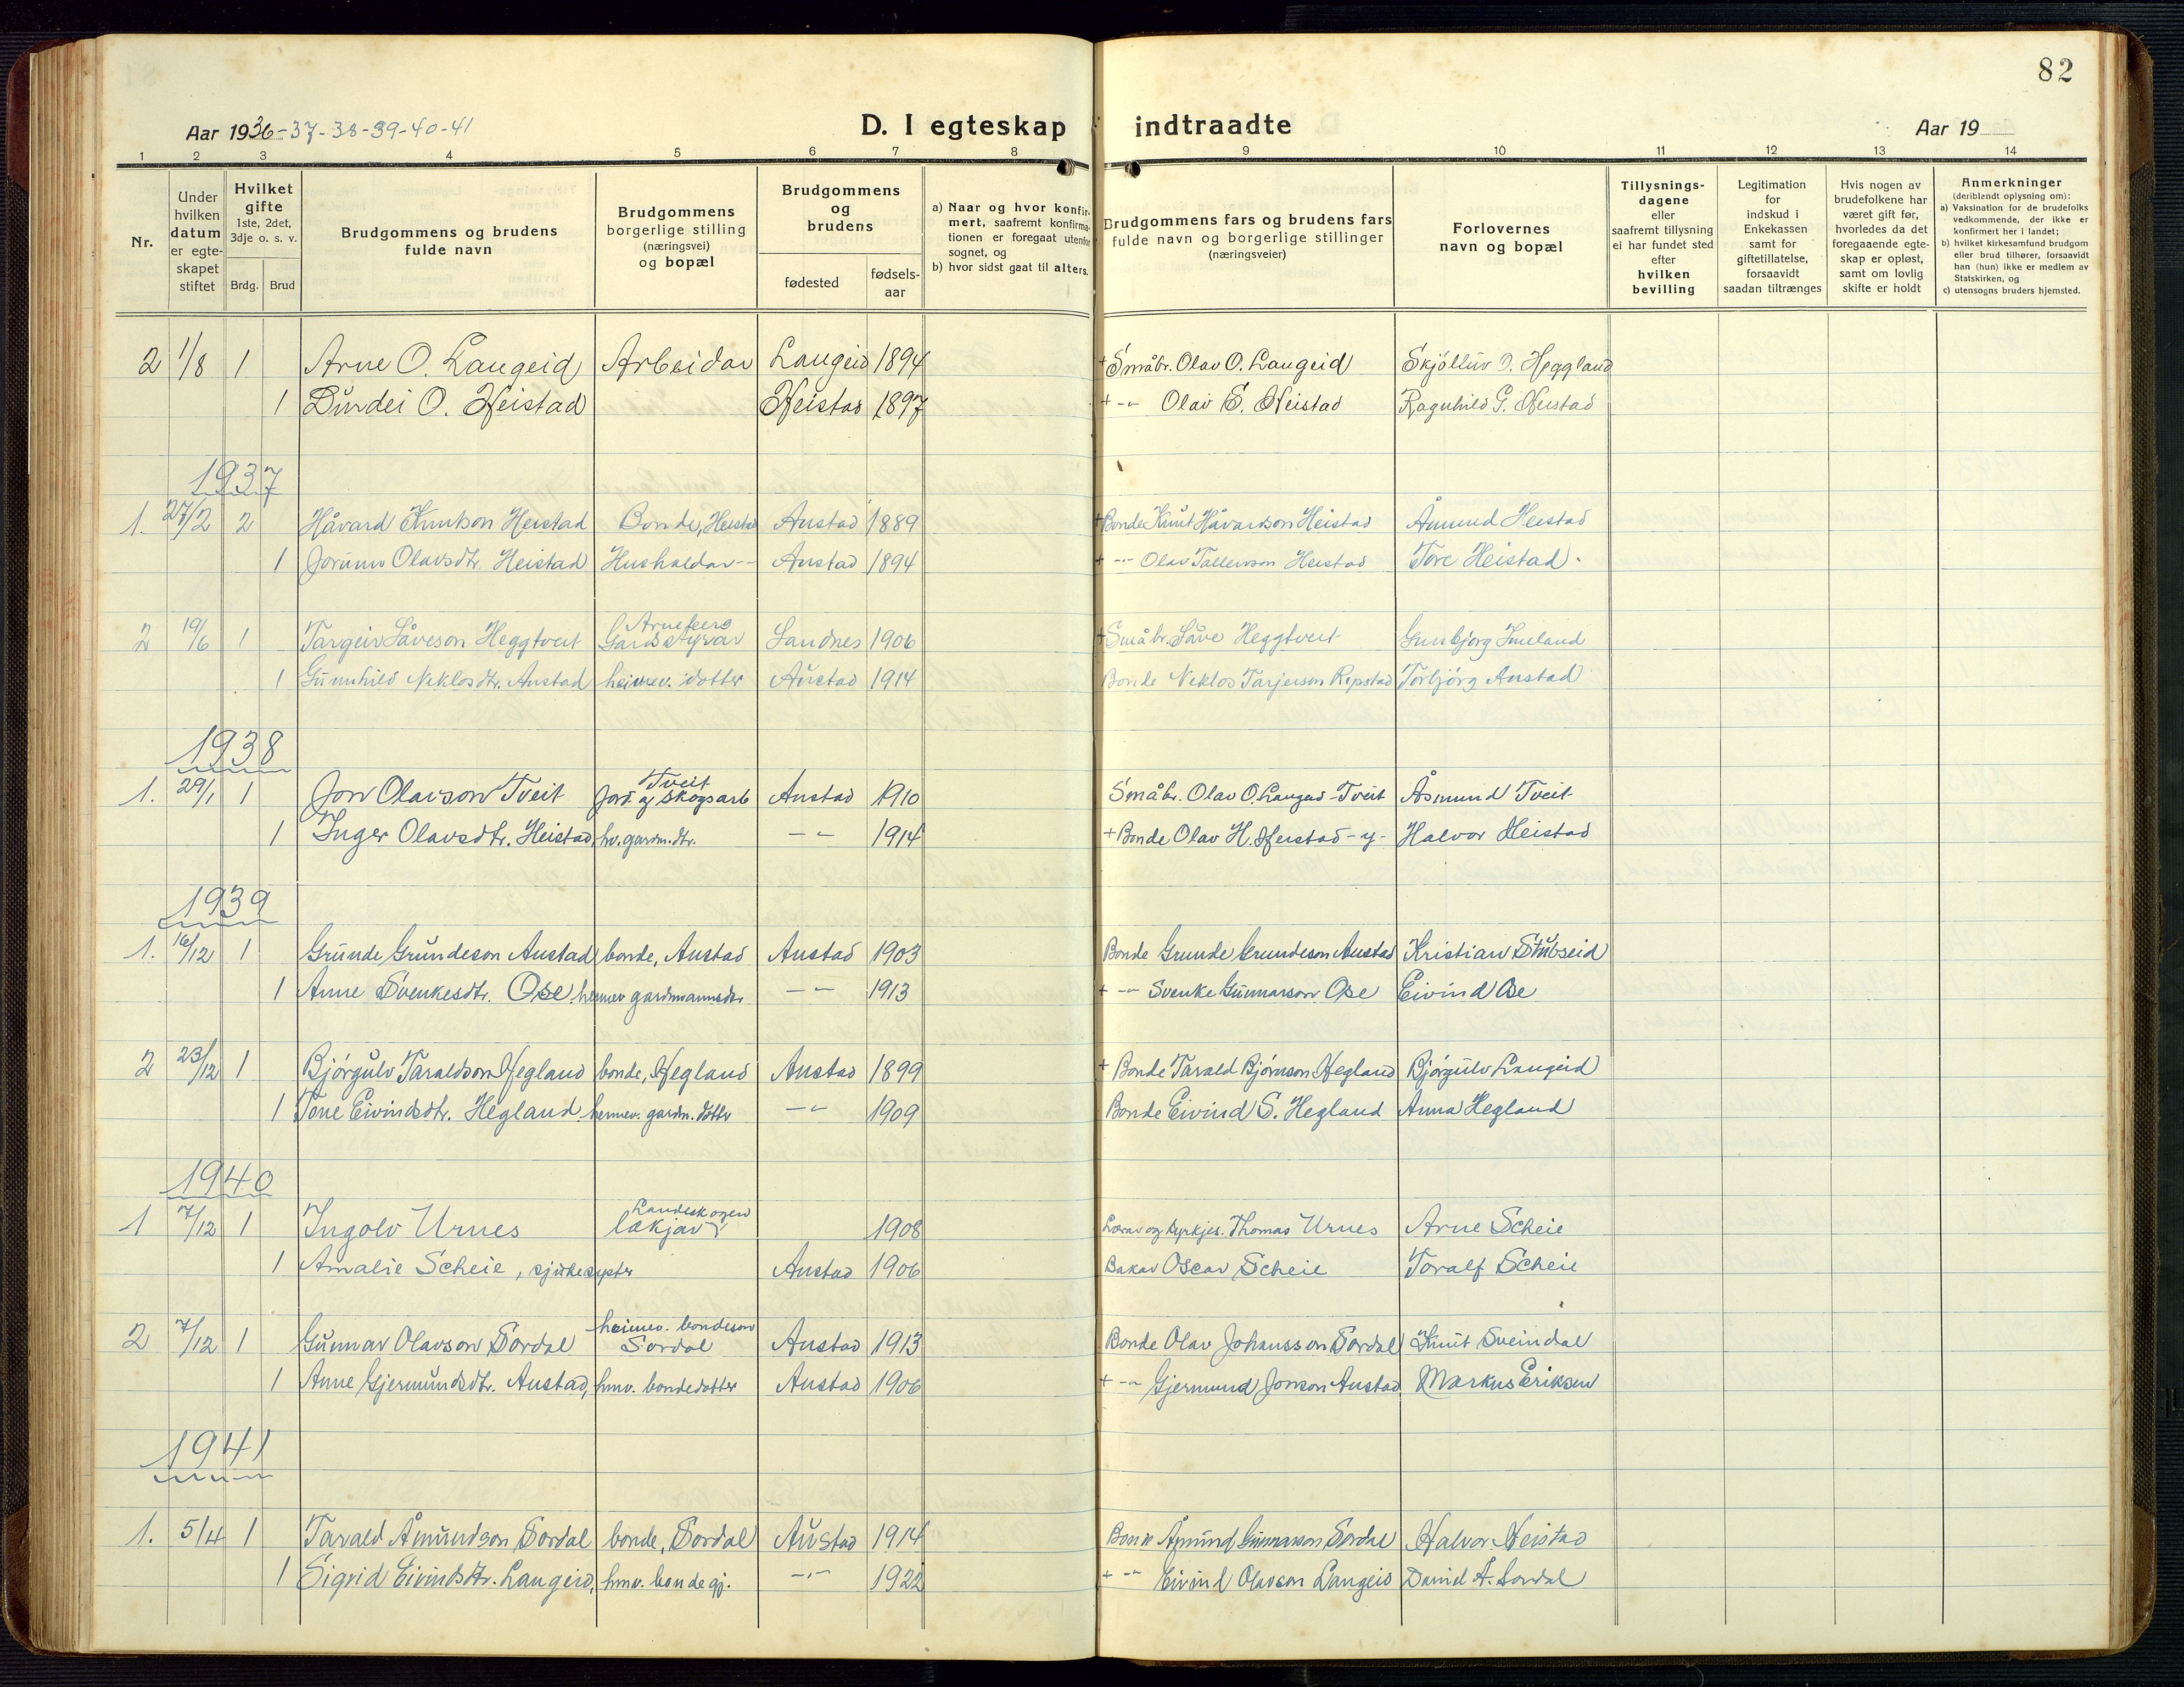 82
Aar 1936-37-38-39-40-41 D. I egteskap indtraadte Aar 19
1 2 3 4 5 6 7 8 9 10 11 12 13 14
Nr.
Under hvilken datum er egteskapet stiftet
Hvilket gifte 1ste, 2det, 3dje o. s. v.
Brdg. Brud
Brudgommens og brudens fulde navn
Brudgommens borgerlige stilling (næringsvei) og bopæl
Brudgommens og brudens
fødested fødsels-aar
a) Naar og hvor konfirmert, saafremt konfirmationen er foregaat utenfor sognet, og
b) hvor sidst gaat til alters.
Brudgommens fars og brudens fars fulde navn og borgerlige stillinger (næringsveier)
Forlovernes navn og bopæl
Tillysnings-dagene eller saafremt tillysning ei har fundet sted efter hvilken bevilling
Legitimation for indskud i Enkekassen samt for giftetillatelse, forsaavidt saadan tiltrænges
Hvis nogen av brudefolkene har været gift før, hvorledes da det foregaaende egteskap er opløst, samt om lovlig skifte er holdt
Anmerkninger (deriblandt oplysning om):
a) Vaksination for de brudefolks vedkommende, der ikke er konfirmert her i landet;
b) hvilket kirkesamfund brudgom eller brud tilhører, forsaavidt han (hun) ikke er medlem av Statskirken, og
c) utensogns bruders hjemsted.
2 1/8 1 Arne O. Langeid Arbeidar Langeid 1894 + Småbr. Olav O. Langeid Skjølluv O. Heggland
1 Durdei O. Heistad Heistad 1897 + -"- Olav E. Heistad Ragnhild G. Heistad
1937
1. 27/2 2 Håvard Knutson Heistad Bonde, Heistad Austad 1889 + Bonde Knut Håvardson Heistad Åmund Heistad
1 Jorunn Olavsdtr. Heistad Hushaldar -- Austad 1894 + -"- Olav Tallevson Heistad Tore Heistad.
2 19/6 1 Targeir Såveson Heggtveit Gardstyrar Landnes 1906 + Småbr. Såve Heggtveit Gunbjørg Imeland
1 Gunnhild Neklosdtr. Austad heimev. dotter Austad 1914 Bonde Neklos Tarjeison Ripstad Torbjørg Austad
1938
1. 29/1 1 Jon Olavson Tveit Tveit Jord. og Skogsarb Austad 1910 Småbr. Olav O. Langeid-Tveit Åsmund Tveit
1 Inger Olavsdtr. Heistad, hv. gardm.dtr. -"- 1914 + Bonde Olav H. Heistad -y- Halvor Heistad
1939
1. 16/12 1 Grunde Grundeson Austad bonde, Austad Austad 1903 Bonde Grunde Grundeson Austad Kristian Stubseid
1 Anne Svenkesdtr. Ose heimev gardmannsdtr -"- 1913 + -"- Svenke Gunnarson Ose Eivind Ose
2 23/12 1 Bjørgulv Taraldson Hegland bonde, Hegland Austad 1899 + Bonde Tarald Bjørnson Hegland Bjørgulv Langeid
1 Tone Eivindsdtr. Hegland heimev. gardm. dotter -"- 1909 Bonde Eivind S. Hegland Anna Hegland
1940
1 7/12 1 Ingolv Urnes Landeskogen lækjar 1908 Lærar og kyrkjes. Thomas Urnes Arne Scheie
1 Amalie Scheie, sjukesyster Austad 1906 Bakar Oscar Scheie Toralf Scheie
2 7/12 1 Gunnar Olavson Sordal heimev. bondeson Sordal Austad 1913 Bonde Olav Johansson Sordal Knut Sveindal
1 Anne Gjermundsdtr. Austad, hmv. bondedotter Austad 1906 + -"- Gjermund Jonson Austad Markus Eriksen
1941
1. 5/4 1 Tarald Åmundson Sordal bonde, Sordal Austad 1914 Bonde Åmund Gunnarson Sordal Halvor Heistad
1 Sigrid Eivindsdtr. Langeid, hmv. bondegj. -"- 1922 + -"- Eivind Olavson Langeid Daniel A. Sordal